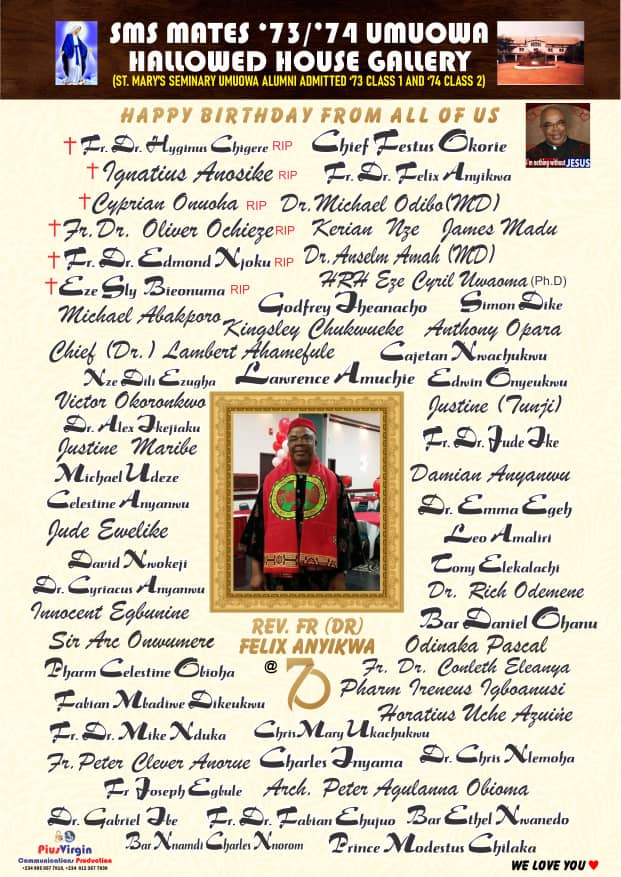 SMS MATES '73/'74 UMUOWA
HALLOWED HOUSE GALLERY
(ST. MARY'S SEMINARY UMUOWA ALUMNI ADMITTED '73 CLASS 1 AND '74 CLASS 2)
HAPPY BIRTHDAY FROM ALL OF US
I'm nothing without JESUS
Fr. Dr. Hyginus Chigere RIP Chief Festus Okorie
Ignatius Anosike RIP Fr. Dr. Felix Anyikwa
Cyprian Onuoha RIP Dr. Michael Odibo (MD)
Fr. Dr. Oliver Ochieze RIP Kerian Nze James Madu
Fr. Dr. Edmond Njoku RIP Dr. Anselm Amah (MD)
Eze Sly Bieonuma RIP HRH Eze Cyril Uwaoma (Ph.D)
Michael Abakporo Godfrey Iheanacho Simon Dike
Kingsley Chukwueke Anthony Opara
Chief (Dr.) Lambert Ahamefule Cajetan Nwachukwu
Nze Dili Ezugha Lawrence Amuchie Edwin Onyeukwu
Victor Okoronkwo Justine (Tunji)
Dr. Alex Ikejiaku Fr. Dr. Jude Ike
Justine Maribe
Michael Udeze Damian Anyanwu
Celestine Anyanwu Dr. Emma Egeh
Jude Ewelike Leo Amaliri
David Nwokeji Tony Elekalachi
Dr. Cyriacus Anyanwu Dr. Rich Odemene
Innocent Egbunine Bar Daniel Ohanu
Sir Arc Onwumere REV. FR (DR) Odinaka Pascal
FELIX ANYIKWA
@ 70
Pharm Celestine Obioha Fr. Dr. Conleth Eleanya
Pharm Ireneus Igboanusi
Fabian Mbadiwe Dikeukwu Horatius Uche Azuine
Fr. Dr. Mike Nduka Chris Mary Ukachukwu
Fr. Peter Clever Anorue Charles Inyama Dr. Chris Nlemoha
Fr Joseph Egbule Arch. Peter Agulanna Obioma
Dr. Gabriel Ibe Fr. Dr. Fabian Ehujuo Bar Ethel Nwanedo
Bar Nnamdi Charles Nnorom Prince Modestus Chilaka
PiusVirgin
Communications Production
WE LOVE YOU